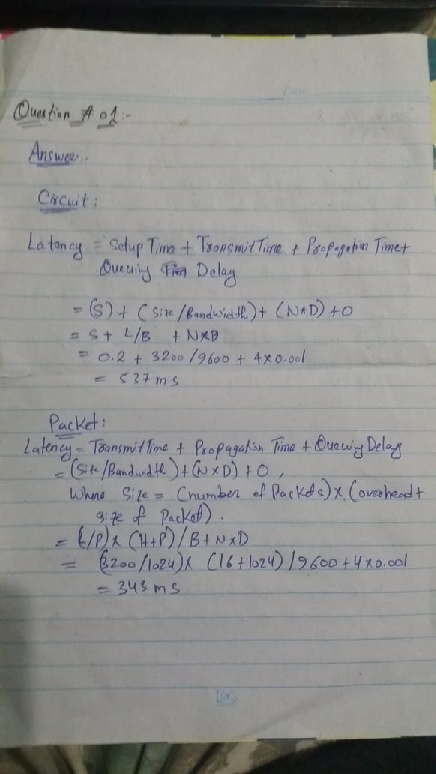 Date:
Question # 01:-
Answer:.
Circuit:
Latency = Setup Time + Transmit Time + Propagation Time +
Queuing Delay
= (S) + (Size/Bandwidth) + (N×D) + 0
= S + L/B + N×D
= 0.2 + 3200/9600 + 4×0.001
= 537 ms
Packet:
Latency = Transmit Time + Propagation Time + Queuing Delay
= (Size/Bandwidth) + (N×D) + 0,
Where Size = (number of Packets) × (overhead +
size of Packet).
= (L/P) × (H+P)/B + N×D
= (3200/1024) × (16+1024)/9600 + 4×0.001
= 343 ms